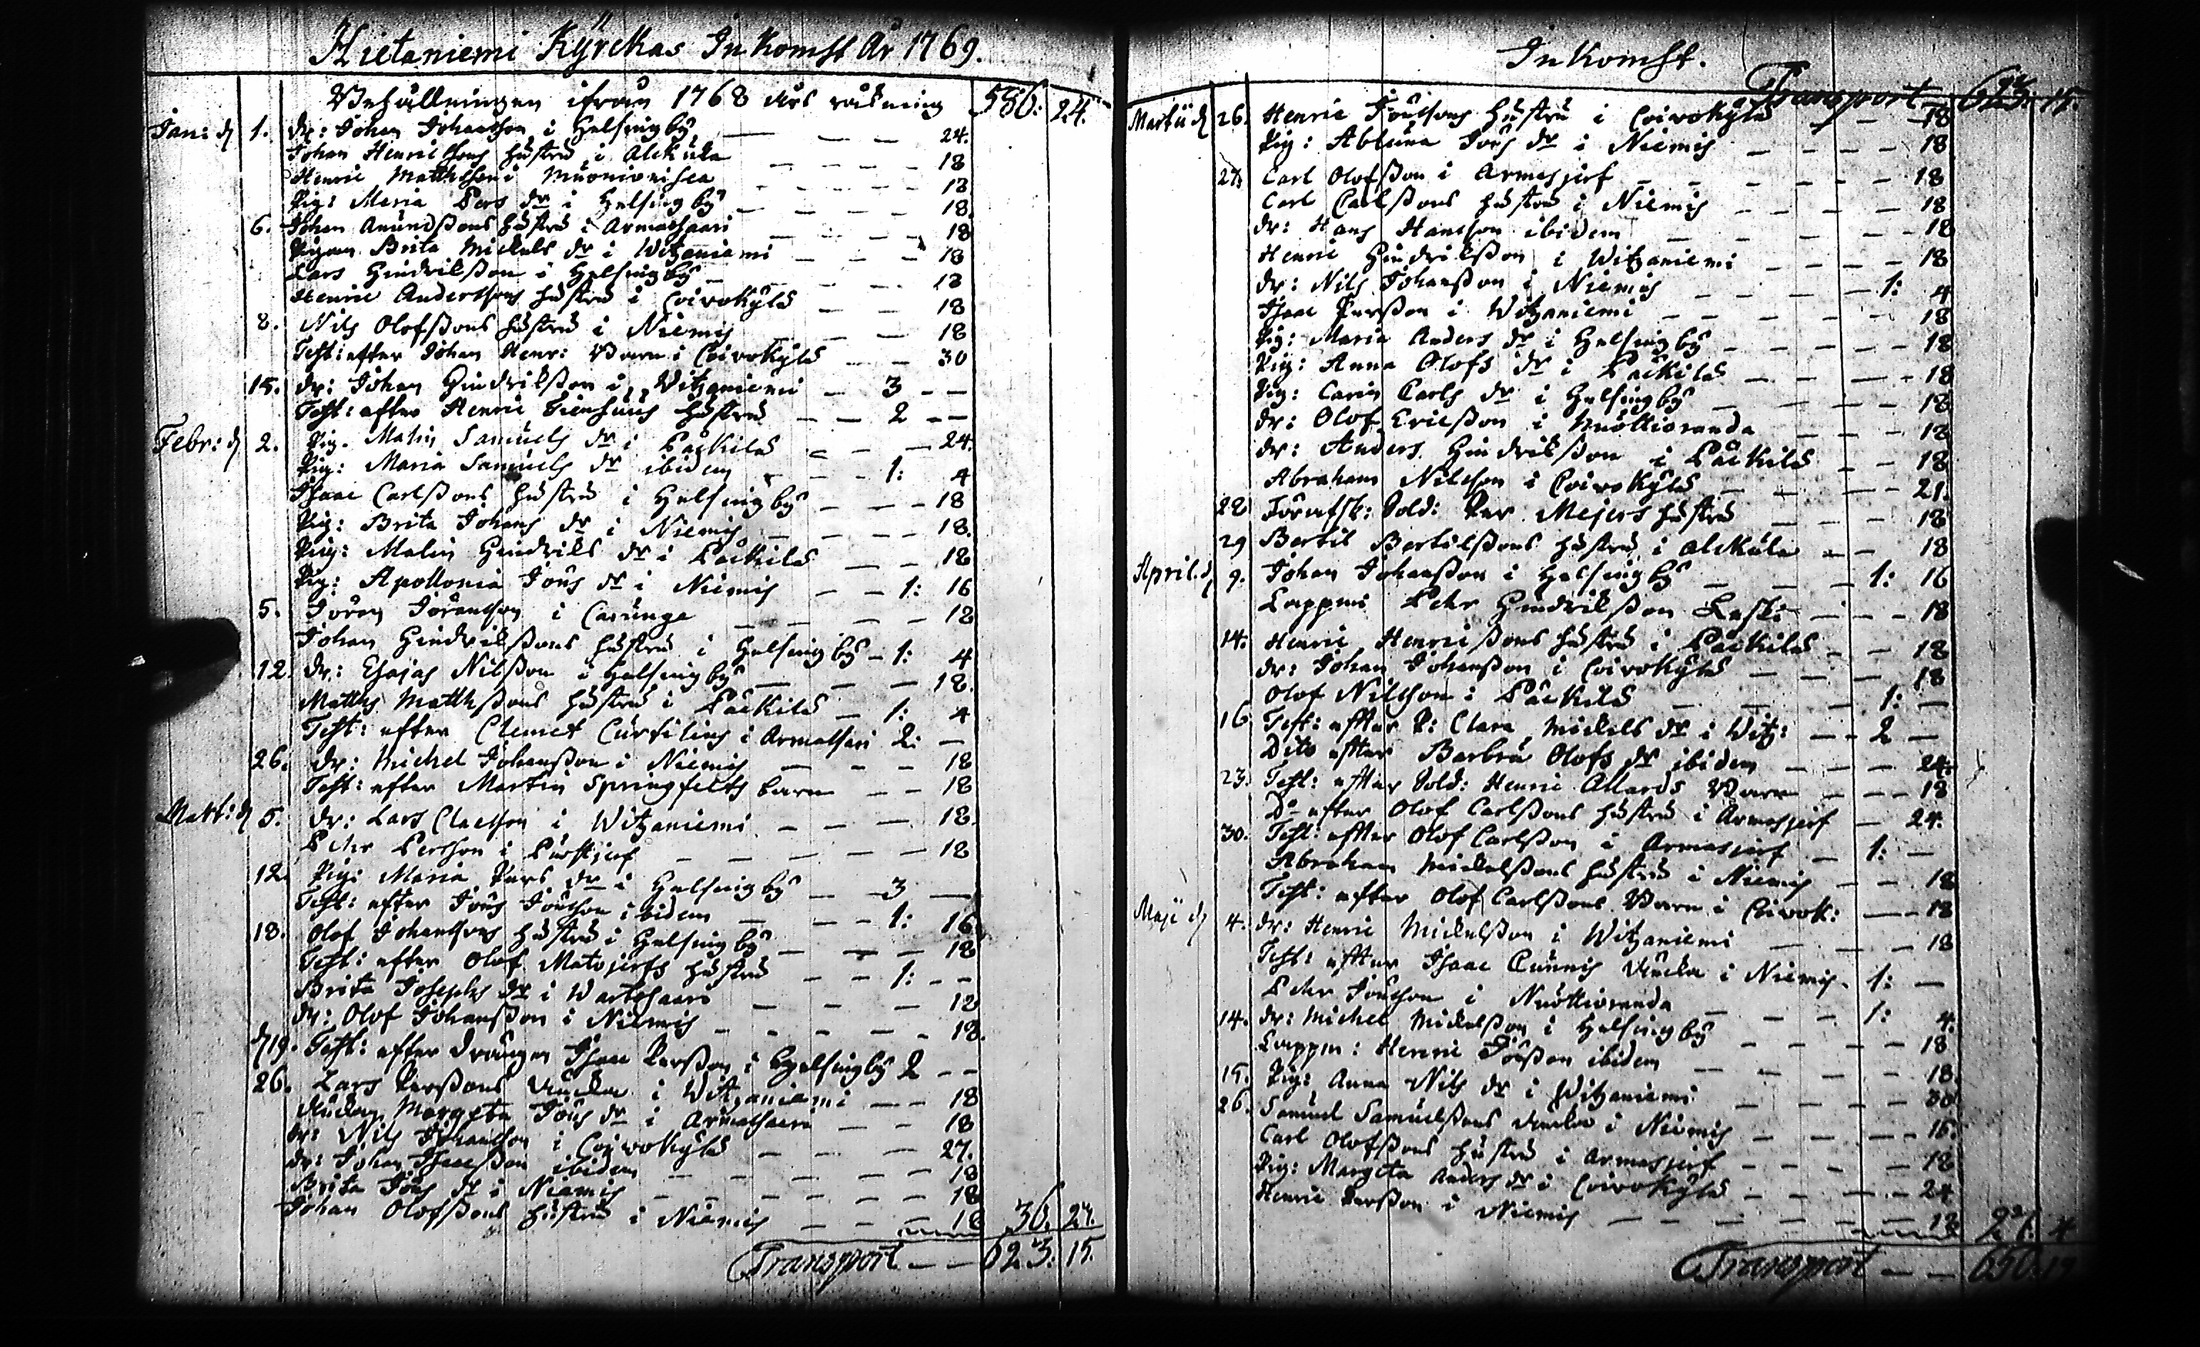 Hietaniemi Kÿrckas Inkomst År 1769.
Behållningen ifrån 1768 års räkning 586: 24.
Jan: d 1. dr: Johan Johansson i Helsingby — — — 24.
Johan Henricsons hustru i Alckula — — — 18
Henric Matthsson i Muonionisca — — — 18
Pig: Maria Pers dr i Helsingby — — — 18
6. Johan Amundssons hustru i Armassaari — — — 18
Pigan Brita Mickels dr i Witzaniemi — — — 18
Lars Hindriksson i Helsingby — — — 18
Henric Anderssons hustru i Coivokÿlä — — 18
8. Nils Olofssons hustru i Niemis — — — 18
Test: efter Johan Henr: Barn i Coivokÿlä — — 30
15. dr: Johan Hindriksson i Witzaniemi — 3 — —
Test: efter Henric hustru — — 2 — —
Febr: d 2. Pig. Malin Samuels dr i Päckilä — — 24.
Pig: Maria Samuels dr ibidem — — 1: 4
Isaac Carlssons hustru i Helsingby — — — 18
Pig: Brita Johans dr i Niemis — — — 18.
Pig: Malin Hindriks dr i Päckilä — — — 18
Pig: Apollonia Jöns dr i Niemis — — 1: 16
5. Jöran Jöransson i Carunge — — — 18
Johan Hindrikssons hustru i Helsingby — 1: 4
12. dr: Esajas Nilsson i Helsingby — — — 18.
Matths Matthssons hustru i Päckilä — 1: 4
Test: efter Clemet Curtilius i Armassari 2: —
26. dr: Michel Johansson i Niemis — — — 18
Test: efter Martin Springfelts barn — — 18
Mart: d 5. dr: Lars Claesson i Witzaniemi — — — 18.
Pehr Persson i — — — 18
12. Pig: Maria Pers dr i Helsingby — 3 —
Test: efter Jöns Jönsson ibidem — — 1: 16
18. Olof Johanssons hustru i Helsingby — — — 18
Test: efter Olof Matojerfs hustru — — 1: — —
Brita Josephs dr i — — — 18
dr: Olof Johansson i Niemis — — — 18.
d 19. Test: efter drängen Isaac Persson i Helsingby 2 — —
26. Lars Perssons Encka i Witzaniemi — — 18
Enckan Margeta Jöns dr i Armassaari — — 18
dr: Nils Johansson i Coivokÿlä — — — 27.
dr: Johan Isacsson ibidem — — — 18
Brita Jöns dr i Niemis — — — 18
Johan Olofssons hustru i Niemis — — — 18 36. 27.
Transport — — 623: 15.
Inkomst.
Transport — 623: 15.
Martii d 26. Henric Jönssons hustru i Coivokÿlä — — 18
Pig: Abluna Jöns dr i Niemis — — — 18
27. Carl Olofsson i Armasjerf — — — 18
Carl Carlssons hustru i Niemis — — — 18
dr: Hans Hansson ibidem — — — 18
Henric Hindriksson i Witzaniemi — — — 18
dr: Nils Johansson i Niemis — — — 1: 4
Isaac Persson i Witzaniemi — — — 18
Pig: Maria Anders dr i Helsingby — — — 18
Pig: Anna Olofs dr i Päckilä — — — 18
Pig: Carin Carls dr i Helsingby — — — 18
dr: Olof Ericsson i Nuottioranda — — — 18
dr: Anders Hindriksson i Päckilä — — 18
Abraham Nilsson i Coivokÿlä — — — 21.
28 Förafsk: Sold: Per Mejers hustru — — — 18
29 Bertil Bertilssons hustru i Alckula — — 18
April. d 9. Johan Johansson i Helsingby — — — 1: 16
Lappen Pehr Hindriksson — — — 18
14. Henric Henricssons hustru i Päckilä — — 18
dr: Johan Johansson i Coivokÿlä — — — 18
Olof Nilsson i Päckilä — — — 1: —
16 Test: efter P: Clara Mickels dr i Witz: — — 2 —
Dito efter Barbru Olofs dr ibidem — — — 24.
23. Test: efter Sold: Henric Allards Barn — — 18
Do efter Olof Carlssons hustru i Armasjerf — 24.
30. Test: efter Olof Carlsson i Armasjerf — 1: —
Abraham Mickelssons hustru i Niemis — — 18
Test: efter Olof Carlssons Barn i Coivok: — — 18
Maji d 4. dr: Henric Mickelsson i Witzaniemi — — — 18
Test: efter Isaac Encka i Niemis. 1: —
Pehr Jönsson i Nuottioranda — — — 1: 4.
14. dr: Michel Mickelsson i Helsingby — — — 18
Lappen: Henric ibidem — — — 18.
15. Pig: Anna Nils dr i Witzaniemi — — — 30
26. Samuel Samuelssons Encka i Niemis — — — 15.
Carl Olofssons hustru i Armasjerf — — — 18
Pig: Margeta Anders dr i Coivokÿlä — — — 24
Henric Persson i Niemis — — — 18 27. 4
Transport — — 650: 19